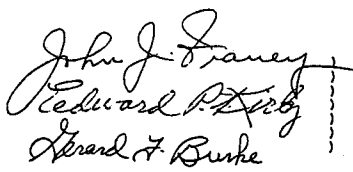 John J. Franey
Edward P. Kirby
Gerard F. Burke